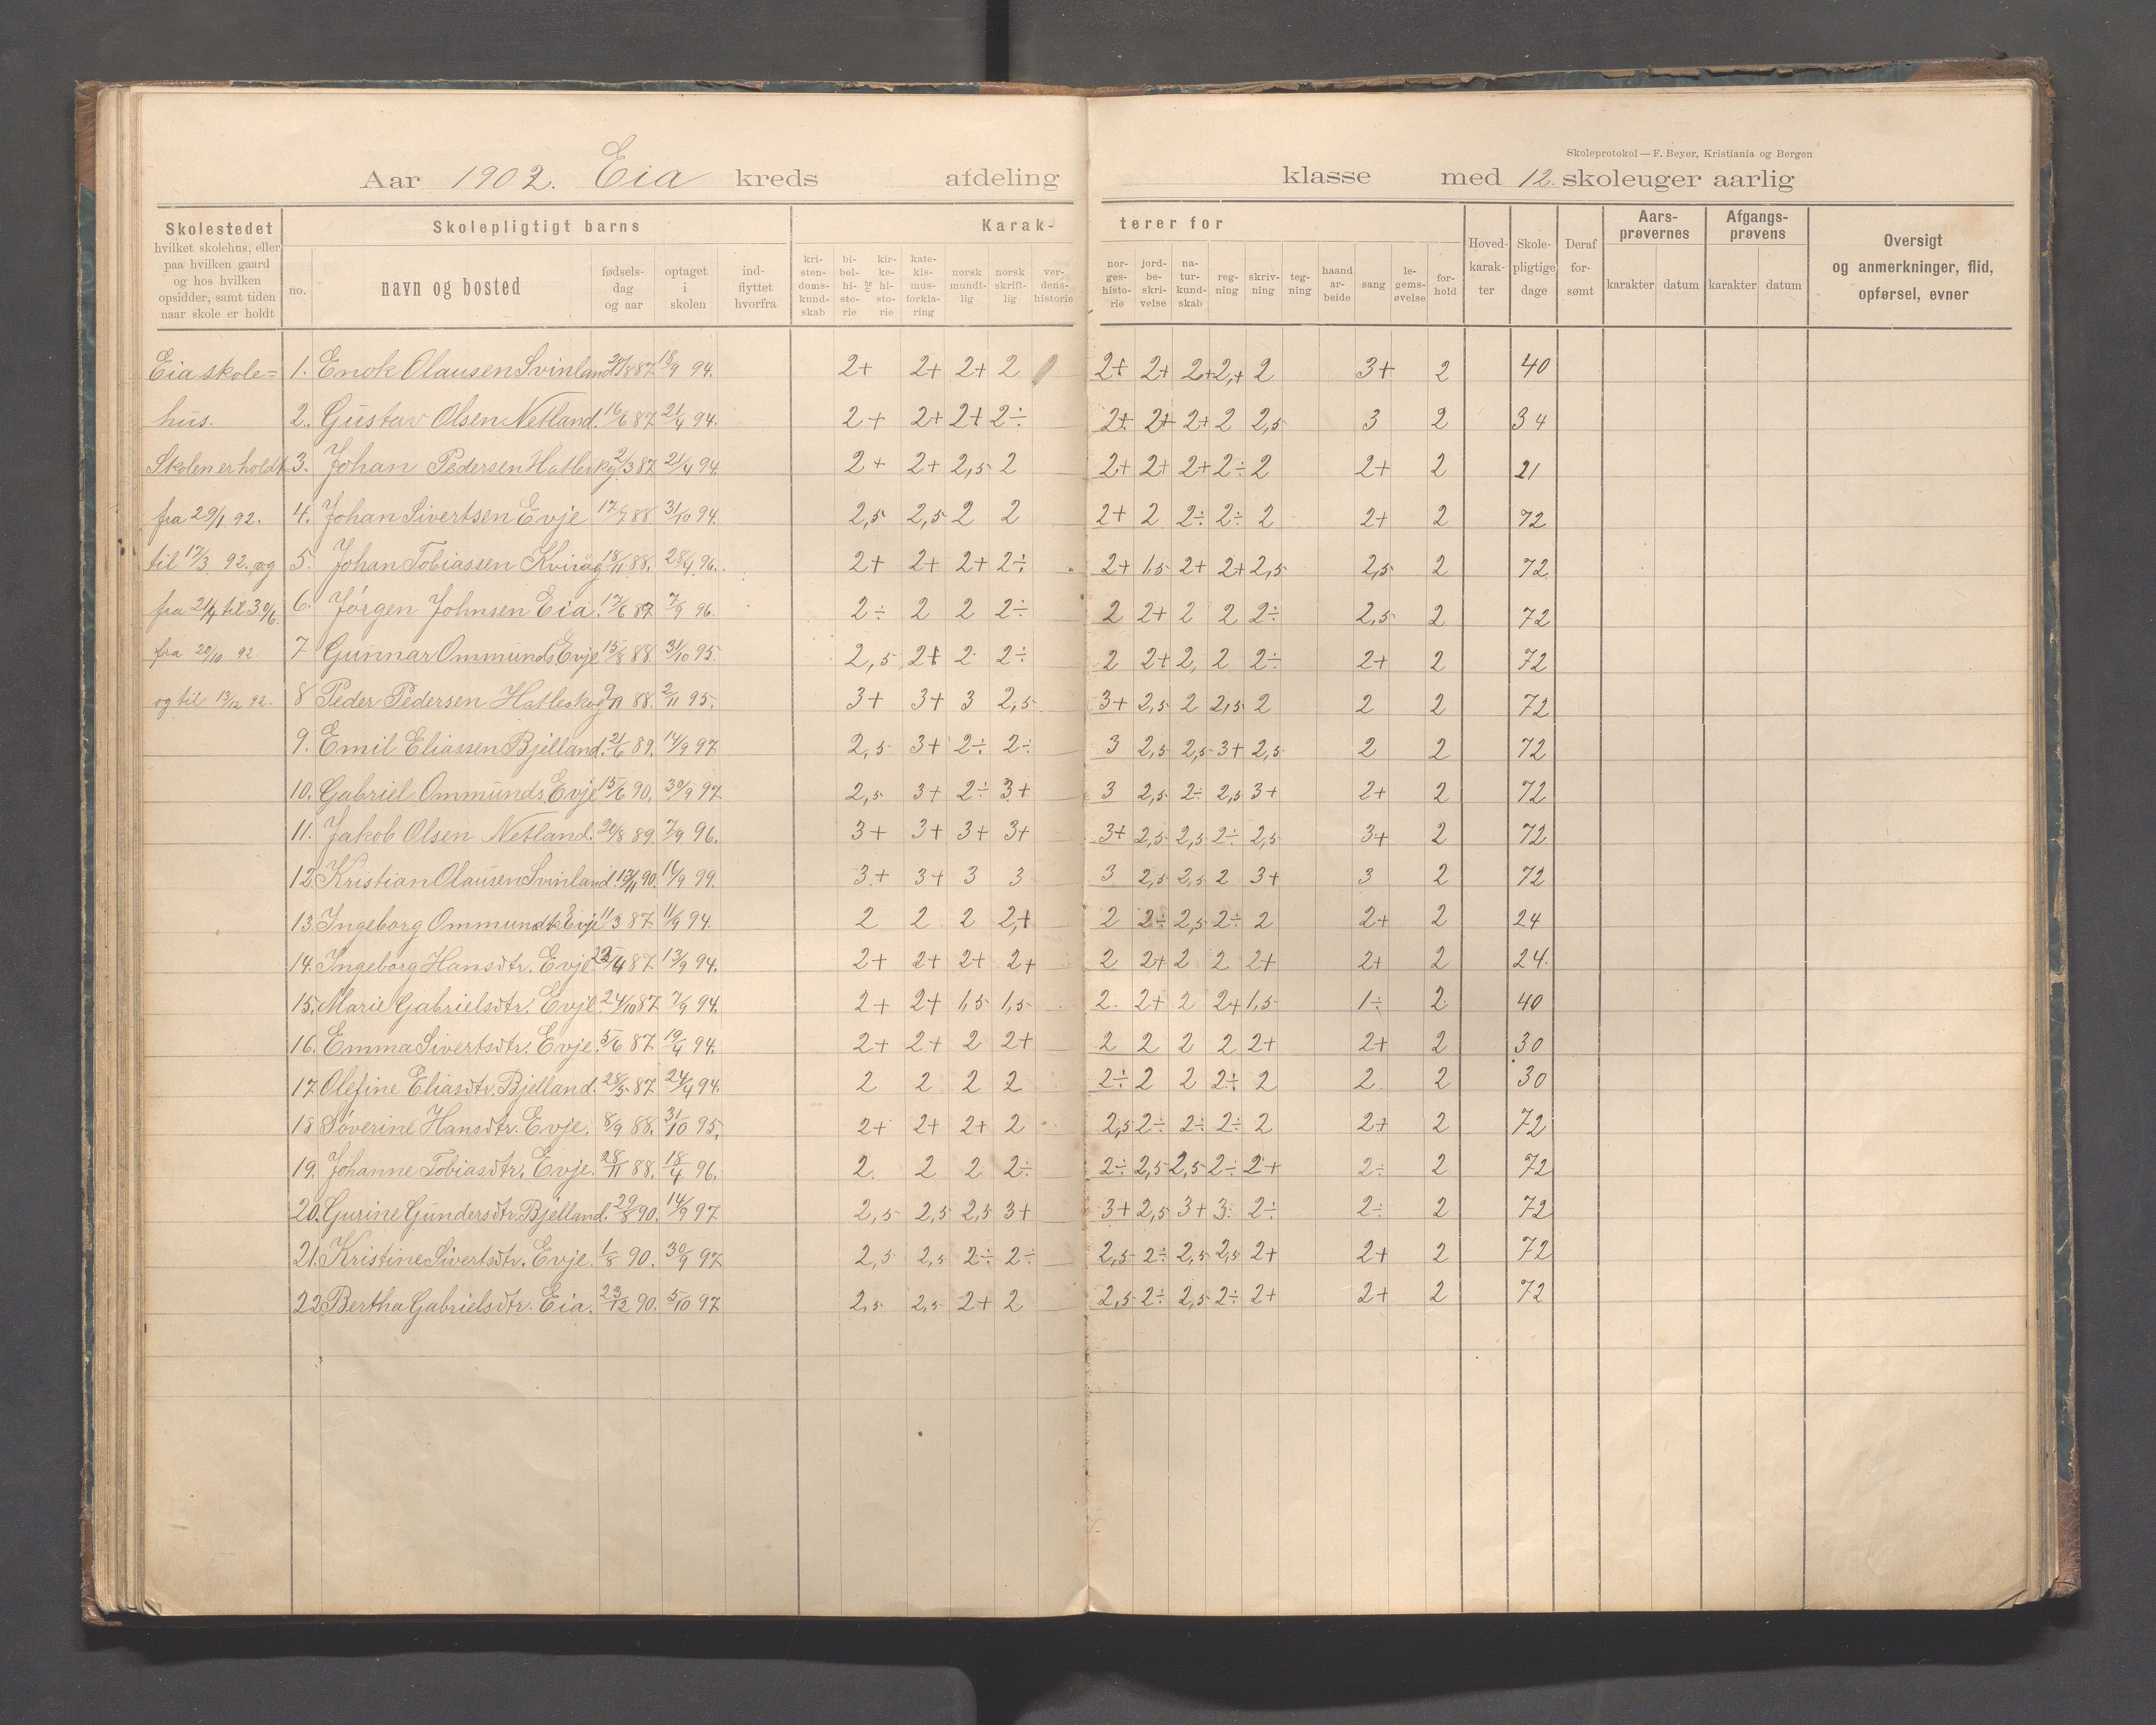 Skoleprotokol — F. Beyer, Kristiania og Bergen
Aar 1902. Eia kreds afdeling klasse med 12. skoleuger aarlig
Skolestedet
hvilket skolehus, eller
paa hvilken gaard
og hos hvilken
opsidder, samt tiden
naar skole er holdt
Skolepligtigt barns
no.
navn og bosted
fødsels-
dag
og aar
optaget
i
skolen
ind-
flyttet
hvorfra
Karak-
terer for
kri-
sten-
doms-
kund-
skab
bi-
bel-
hi-
sto-
rie
og
kir-
ke-
hi-
sto-
rie
kate-
kis-
mus-
forkla-
ring
norsk
mundt-
lig
norsk
skrift-
lig
ver-
dens-
historie
nor-
ges-
histo-
rie
jord-
be-
skri-
velse
na-
tur-
kund-
skab
reg-
ning
skriv-
ning
teg-
ning
haand
ar-
beide
sang
le-
gems-
øvelse
for-
hold
Hoved-
karak-
ter
Skole-
pligtige
dage
Deraf
for-
sømt
Aars-
prøvernes
karakter datum
Afgangs-
prøvens
karakter datum
Oversigt
og anmerkninger, flid,
opførsel, evner
Eia skole=
hus.
Skolen er holdt
fra 29/1 92.
til 17/3 92., og
fra 21/4 til 30/6.
fra 20/10 92
og til 13/12 92.
1. Enok Olausen Svinland 21/8 87. 18/9 94. 2+ 2+ 2+ 2 2+ 2+ 2+ 2,+ 2 3+ 2 40
2. Gustav Olsen Netland. 16/6 87 21/4 94. 2+ 2+ 2+ 2÷ 2+ 2+ 2+ 2 2,5 3 2 34
3. Johan Pedersen Hatleskog 2/3 87 21/4 94. 2+ 2+ 2,5 2 2+ 2+ 2+ 2÷ 2 2+ 2 21
4. Johan Sivertsen Evje 17/7 88. 31/10 94. 2,5 2,5 2 2 2+ 2 2÷ 2÷ 2 2+ 2 72
5. Johan Tobiassen Kviåg 18/11 88. 28/4 96. 2+ 2+ 2+ 2÷ 2+ 1,5 2+ 2+ 2,5 2,5 2 72
6. Jørgen Johnsen Eia. 17/6 89. 7/9 96. 2÷ 2 2 2÷ 2 2+ 2 2 2÷ 2,5 2 72
7 Gunnar Ommunds Evje 15/8 88. 31/10 95. 2,5 2+ 2 2÷ 2 2+ 2, 2 2÷ 2+ 2 72
8 Peder Pedersen Hatleskog 9/11 88. 2/11 95. 3+ 3+ 3 2,5 3+ 2,5 2 2,5 2 2 2 72
9. Emil Eliassen Bjelland. 21/6 89. 14/9 97 2,5 3+ 2÷ 2÷ 3 2,5 2,5 3+ 2,5 2 2 72
10. Gabriel Ommunds Evje 15/6 90. 30/9 97 2,5 3+ 2÷ 3+ 3 2,5 2÷ 2,5 3+ 2+ 2 72
11. Jakob Olsen Netland. 20/8 89. 7/9 96. 3+ 3+ 3+ 3+ 3+ 2,5 2,5 2÷ 2,5 3+ 2 72
12. Kristian Olausen Svinland. 13/11 90. 16/9 99. 3+ 3+ 3 3 3 2,5 2,5 2 3+ 3 2 72
13. Ingeborg Ommundtr Evje 11/3 87. 11/9 94. 2 2 2 2,+ 2 2÷ 2,5 2÷ 2 2+ 2 24
14. Ingeborg Hansdtr. Evje. 23/4 87 13/9 94. 2+ 2+ 2+ 2+ 2 2+ 2 2 2+ 2+ 2 24.
15. Marie Gabrielsdtr. Evje. 24/10 87 7/9 94. 2+ 2+ 1,5 1,5 2. 2+ 2 2+ 1,5 1÷ 2 40
16. Emma Sivertsdtr. Evje. 5/6 87 19/4 94. 2+ 2+ 2 2+ 2 2 2 2 2+ 2+ 2 30
17. Olefine Eliasdtr. Bjelland. 28/5 87. 24/4 94. 2 2 2 2 2÷ 2 2 2÷ 2 2 2 30
18 Søverine Hansdtr. Evje. 8/9 88. 31/10 95. 2+ 2+ 2+ 2 2,5 2÷ 2÷ 2÷ 2 2+ 2 72
19. Johanne Tobiasdtr. Evje. 28/11 88. 18/4 96. 2. 2 2 2÷ 2÷ 2,5 2,5 2÷ 2+ 2÷ 2 72
20. Gurine Gundersdtr. Bjelland. 29/8 90. 14/9 97 2,5 2,5 2,5 3+ 3+ 2,5 3+ 3 2÷ 2÷ 2 72
21. Kristine Sivertsdtr. Evje. 1/8 90. 30/9 97 2,5 2,5 2÷ 2÷ 2,5 2÷ 2,5 2,5 2+ 2+ 2 72
22. Bertha Gabrielsdtr. Eia. 23/12 90. 5/10 97. 2,5 2,5 2+ 2 2,5 2÷ 2,5 2÷ 2+ 2+ 2 72